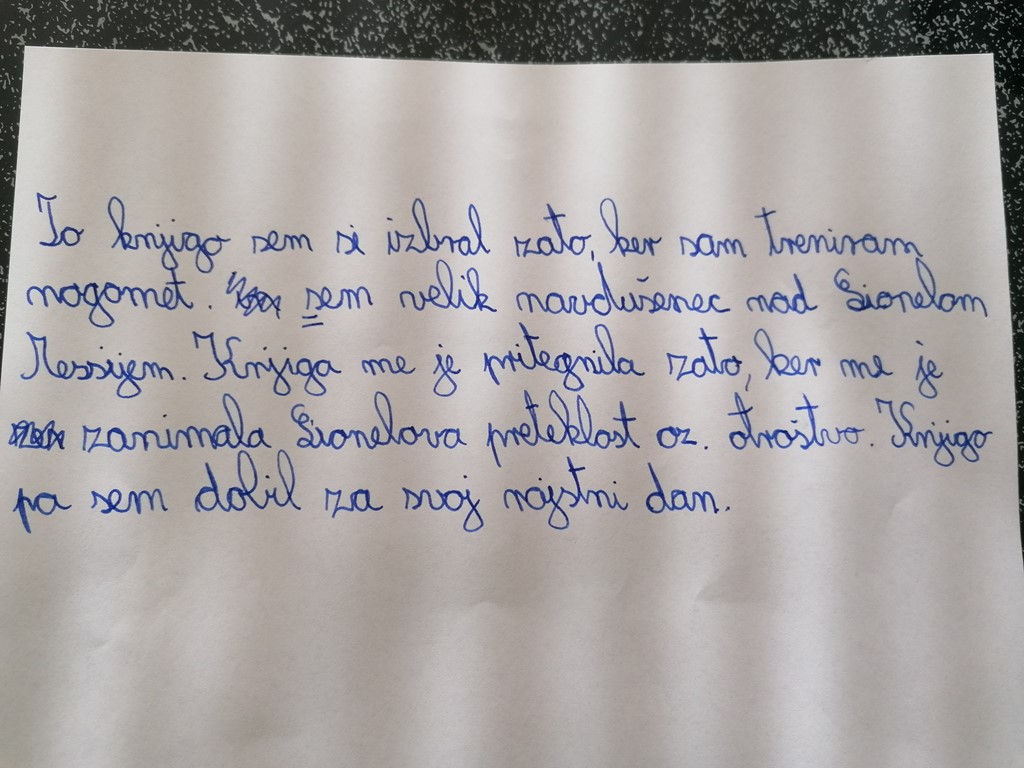 To knjigo sem si izbral zato, ker sam treniram
nogomet. sem velik navdušenec nad Lionelom
Messijem. Knjiga me je pritegnila zato, ker me je
zanimala Lionelova preteklost oz. otroštvo. Knjigo
pa sem dobil za svoj rojstni dan.